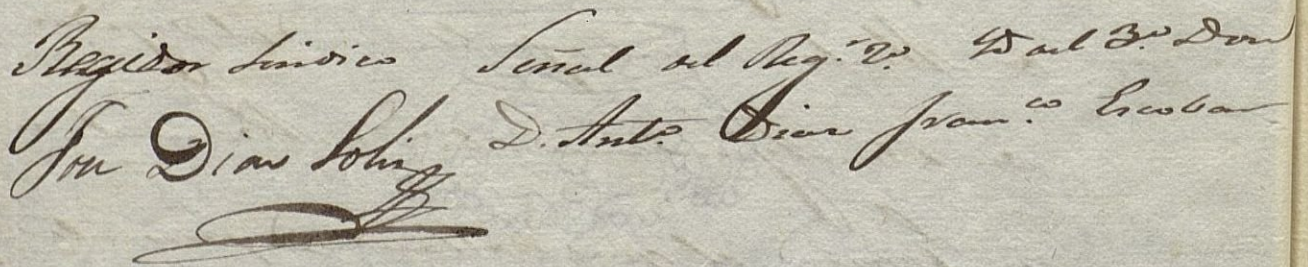 Regidor Sindico Señal del Reg.r 2.o Id del 3.o Don
Jou Diaz Solis D. Ant.o Diaz Fran.co Escobar